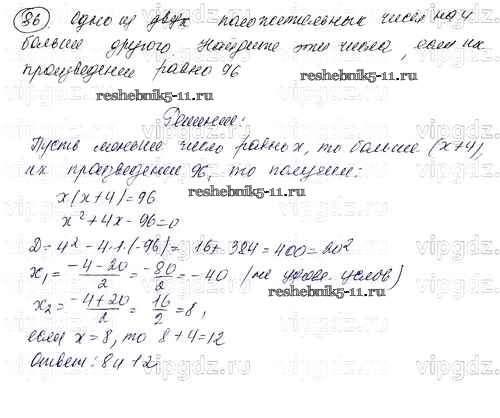 36. Одно из двух положительных чисел на 4
больше другого. Найдите эти числа, если их
произведение равно 96
reshebnik5-11.ru
Решение:
Пусть меньшее число равно x, то больше (x+4),
их произведение 96, то получаем:
x(x+4)=96
reshebnik5-11.ru
x²+4x-96=0
D=4²-4·1·(-96)= 16+384=400=20²
x₁= -4-20/2 = -80/2 = -40 (не удовл. услов)
reshebnik5-11.ru
x₂= -4+20/2 = 16/2 = 8,
если x=8, то 8+4=12
Ответ: 8 и 12
vipgdz.com